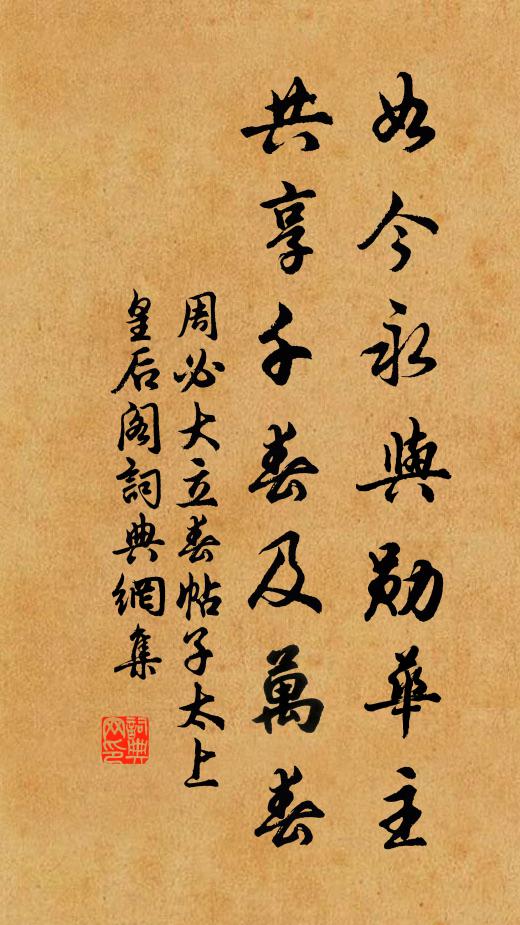 如今永與勛華主
共享千春及萬春
周必大立春帖子太上
皇后阁詞典網集
詞典網印